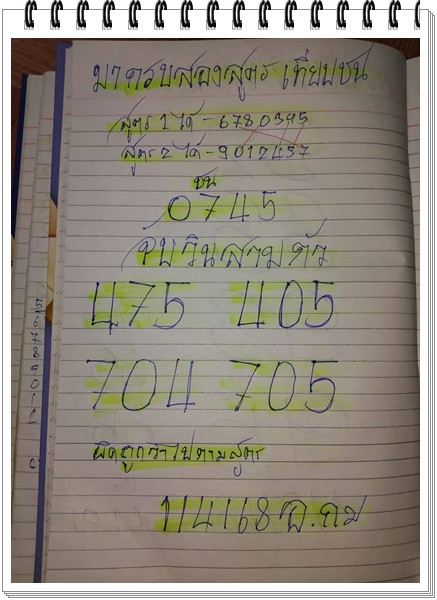 มาครบสองสูตร เทียบชน
สูตร 1 ได้ - 6780345
สูตร 2 ได้ - 9012457
ชน
0745
จับวินสามตัว
475 405
704 705
ผิดถูกว่าไปตามสูตร
1/4/68